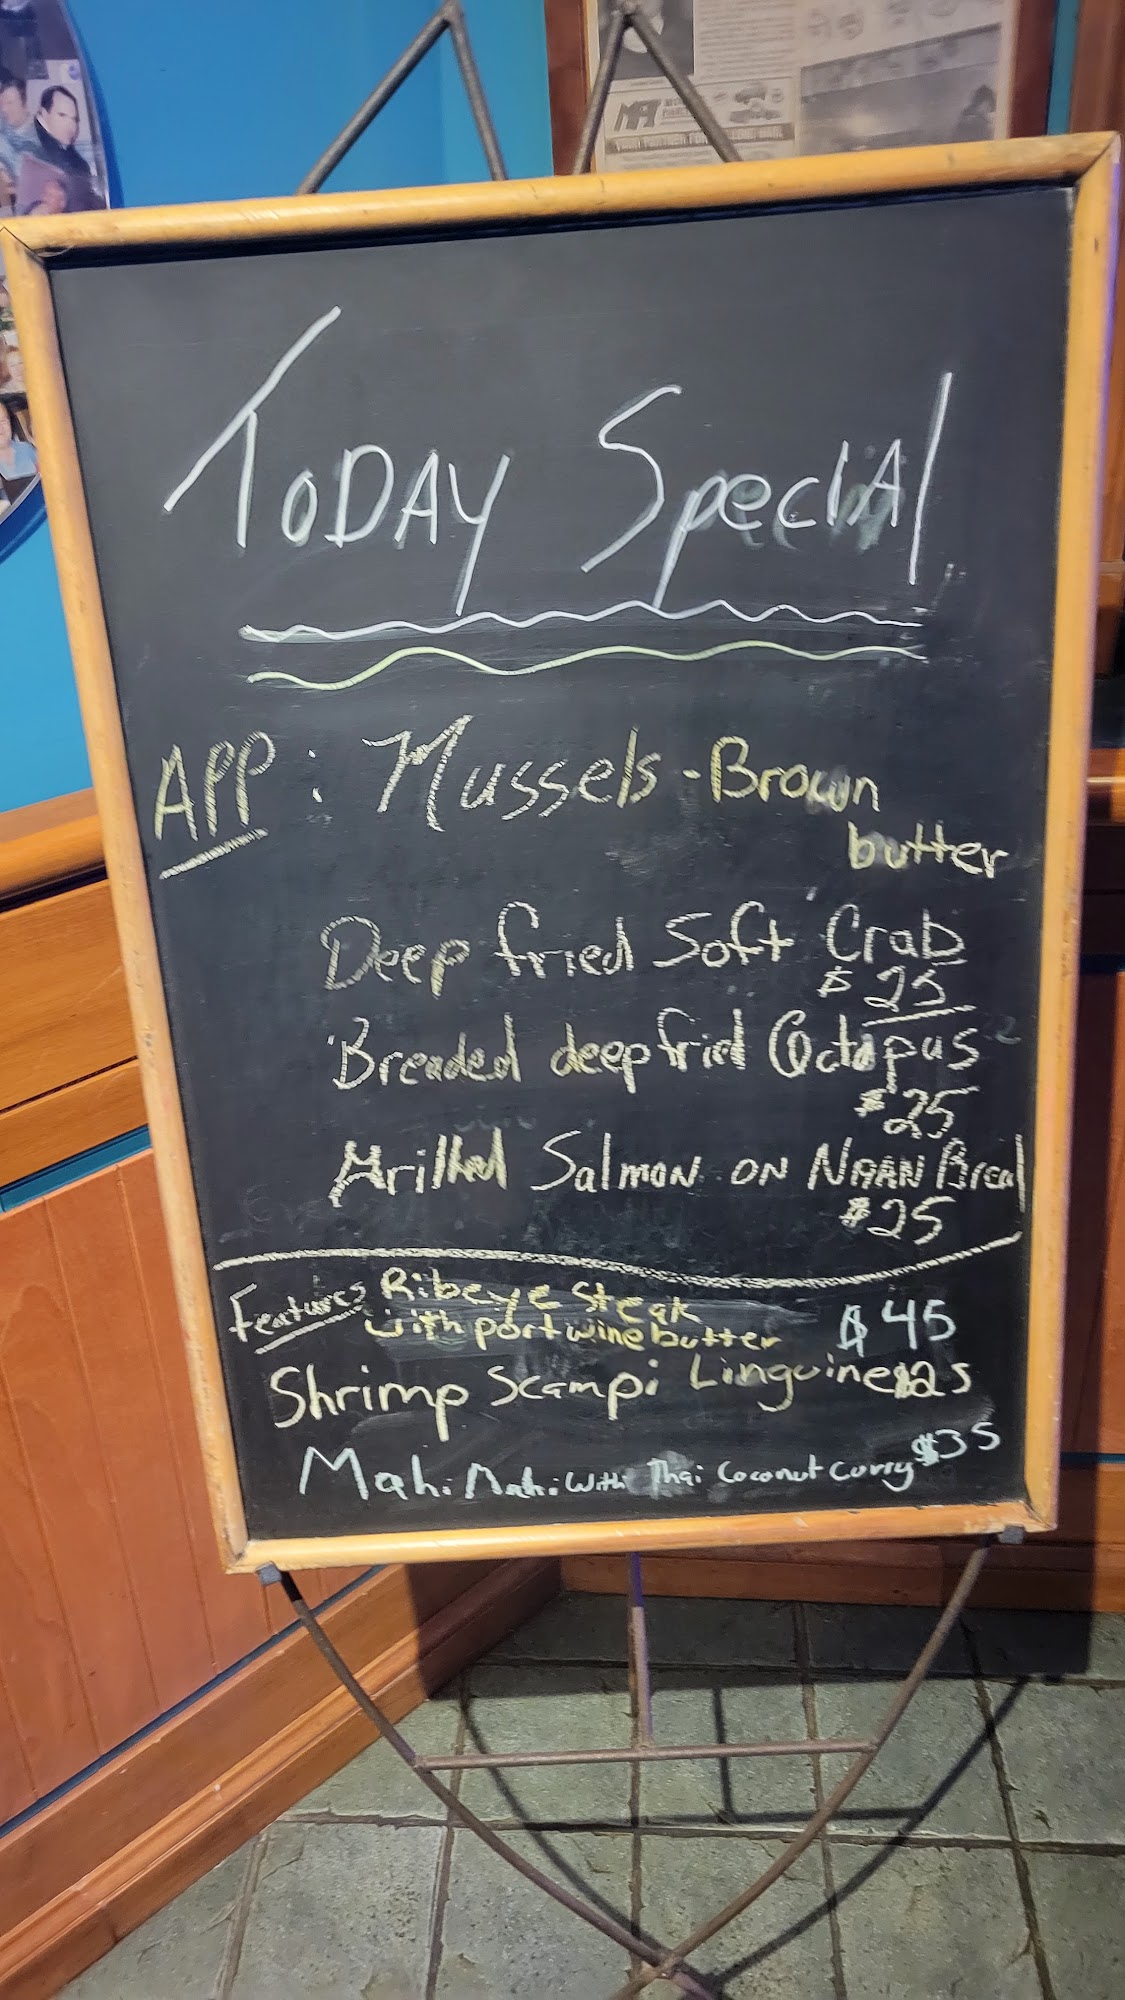 TODAY Special
APP: Mussels - Brown
butter
Deep fried Soft Crab
$25
Breaded deep fried Octopus
$25
Grilled Salmon ON NAAN Bread
$25
Features Ribeye Steak
with port wine butter $45
Shrimp Scampi Linguine $25
Mahi Mahi With Thai Coconut Curry $35